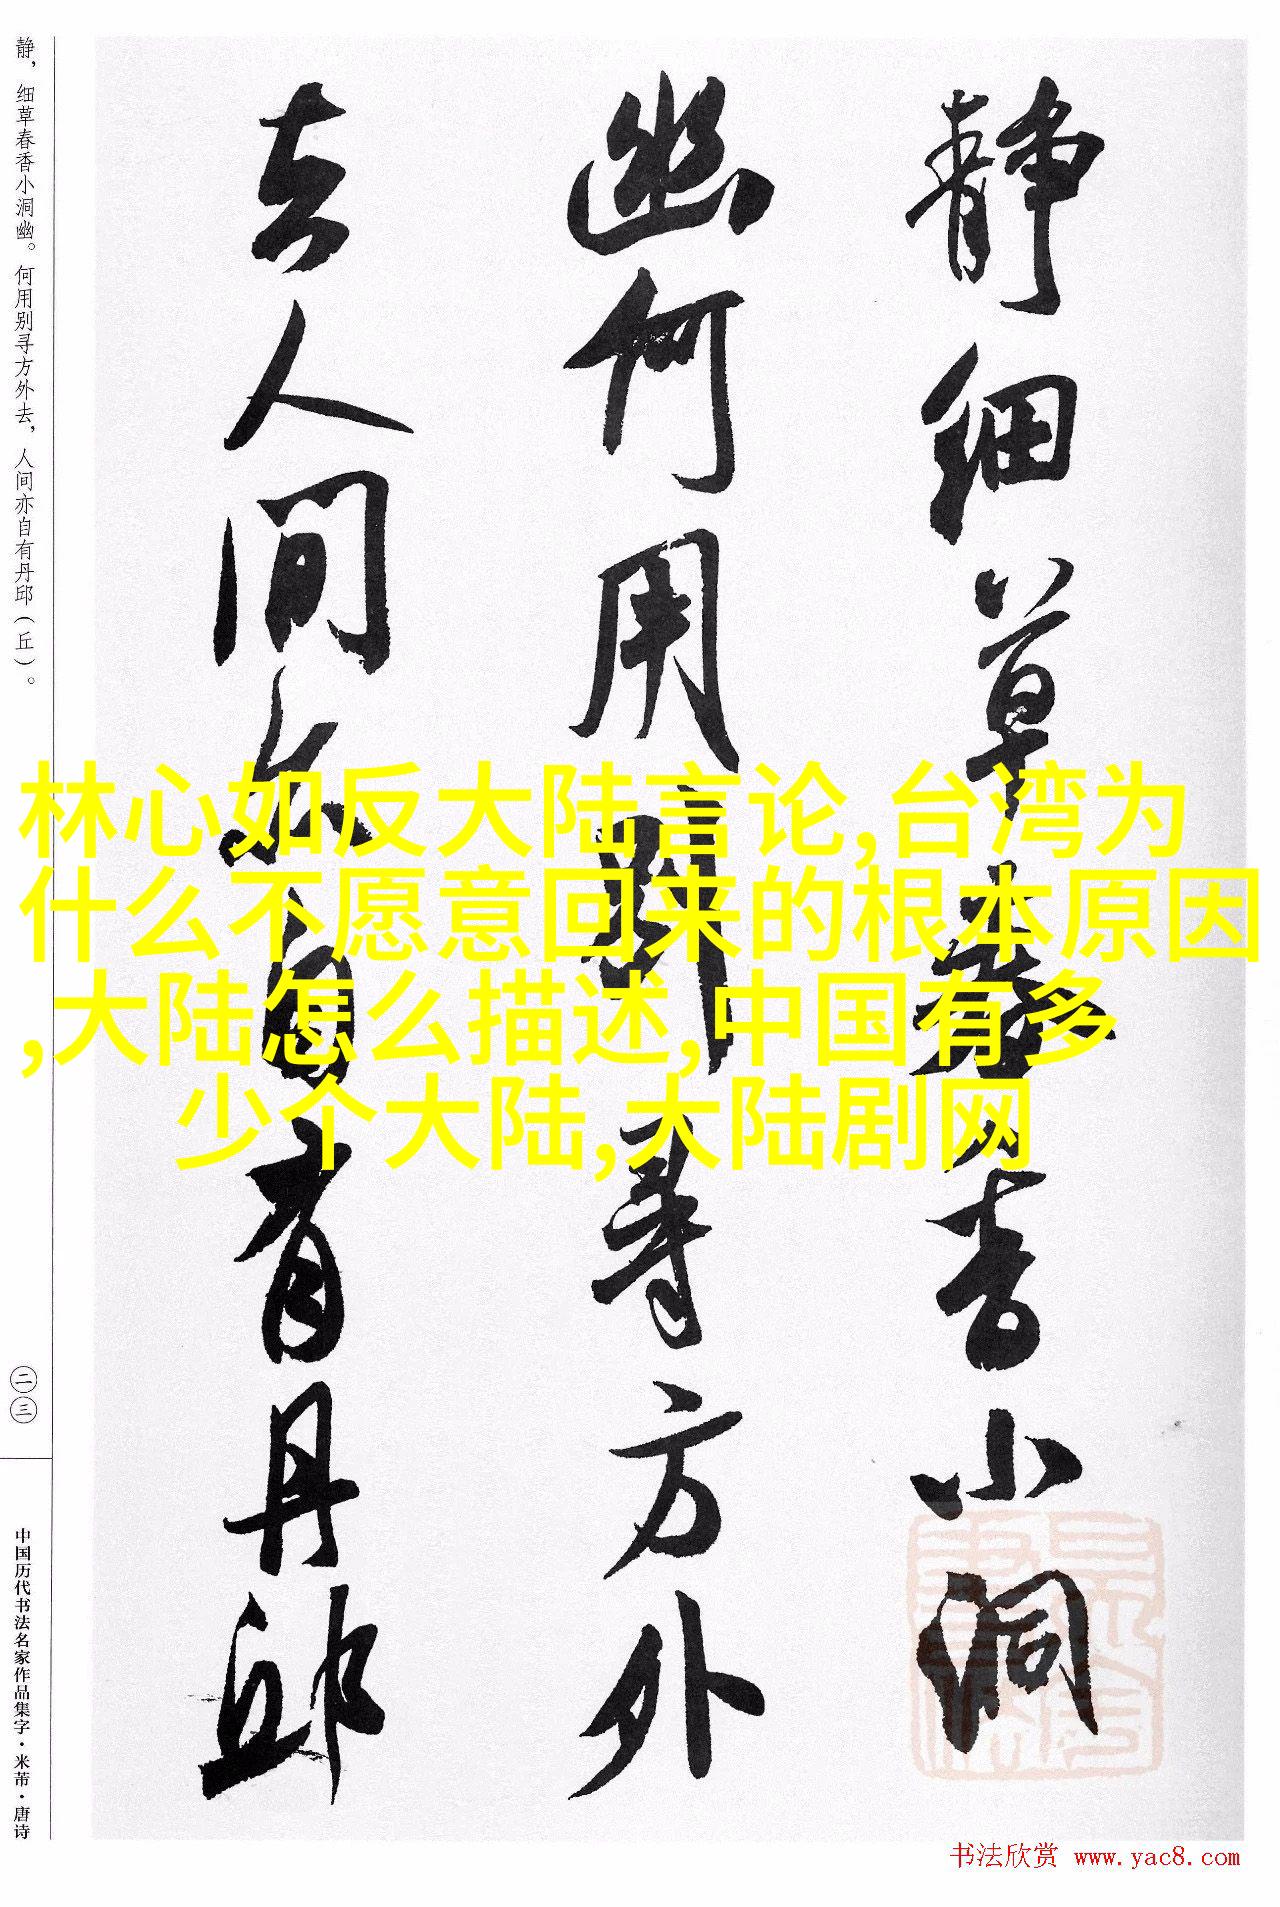 静细草春香小洞
幽何用别寻方外
去人间亦自有丹邱
静，细草春香小洞幽。何用别寻方外去，人间亦自有丹邱（丘）。
二三
中国历代书法名家作品集字·米芾·唐诗
林心如反大陆言论,台湾为
什么不愿意回来的根本原因
,大陆怎么描述,中国有多
少个大陆,大陆剧网
书法欣赏 www.yac8.com